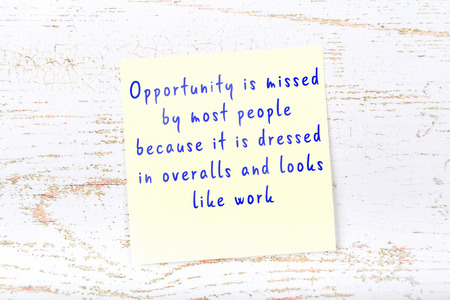 Opportunity is missed
by most people
because it is dressed
in overalls and looks
like work